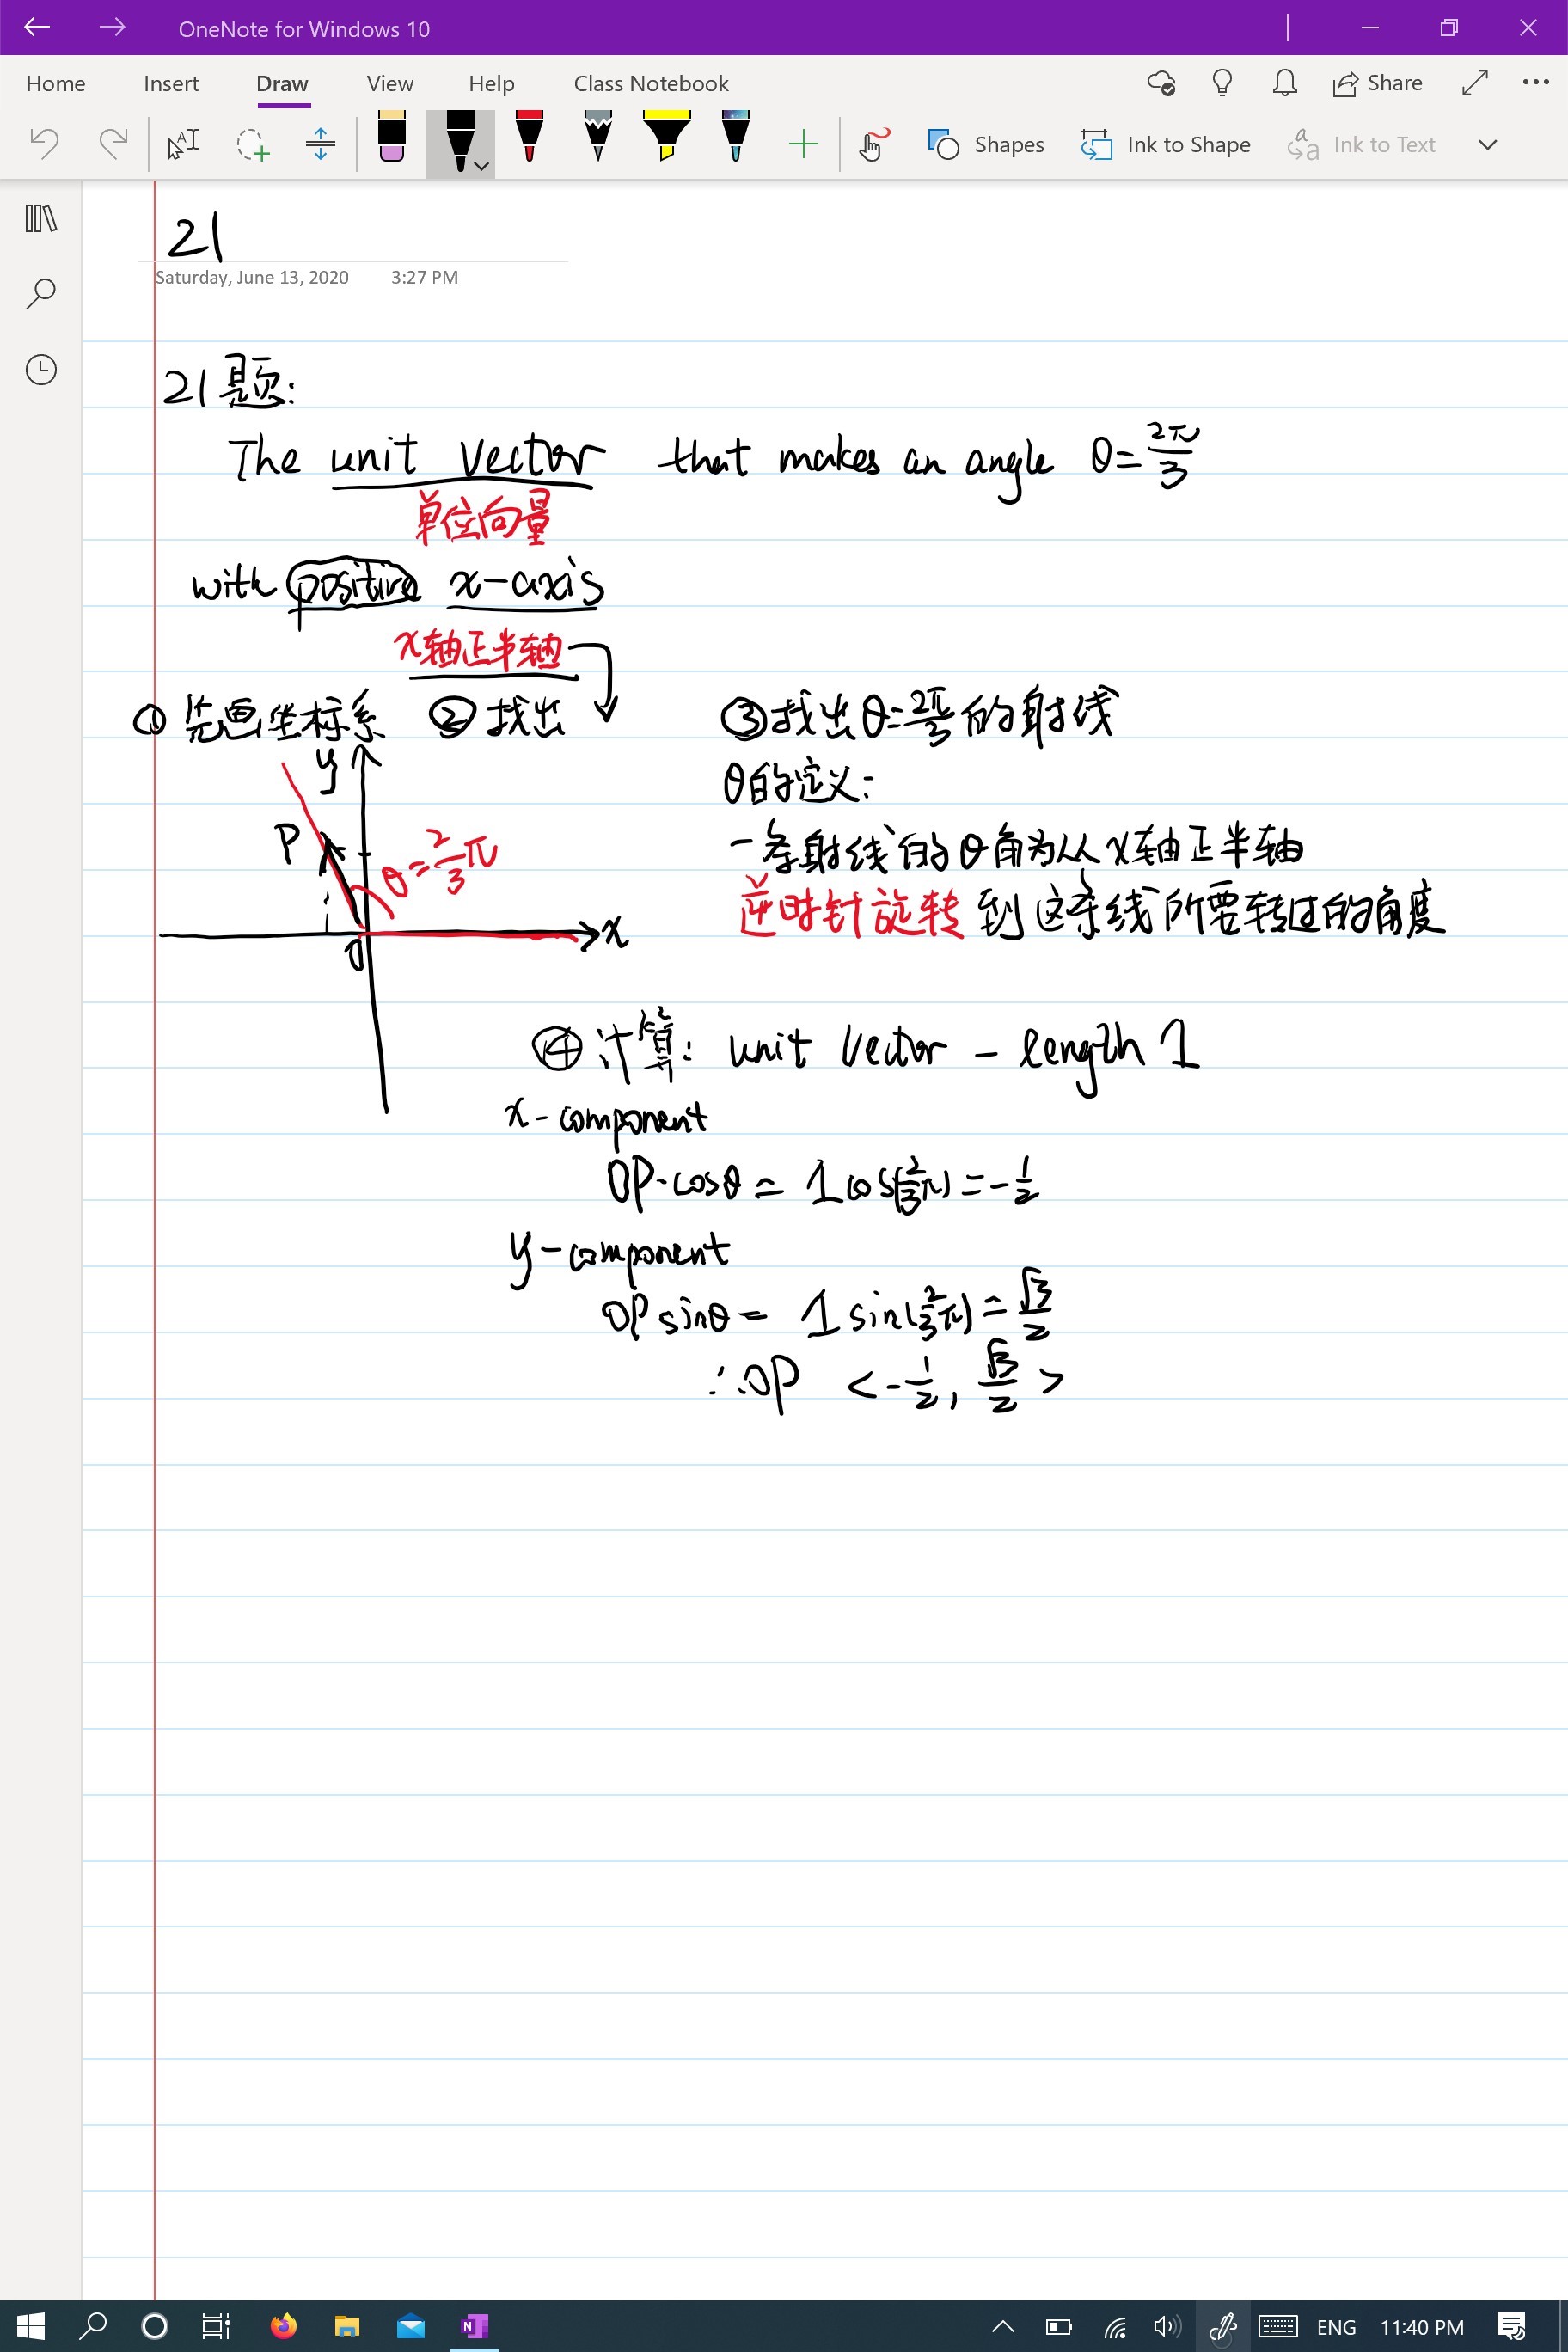 OneNote for Windows 10
Home Insert Draw View Help Class Notebook Share
Shapes Ink to Shape Ink to Text
21
Saturday, June 13, 2020 3:27 PM
21题:
The unit vector that makes an angle θ=2π/3
单位向量
with positive x-axis
x轴正半轴
① 先画坐标系 ② 找出 ③ 找出θ=2π/3的射线
y
θ的定义:
P
θ=2/3π
一条射线的θ角为从x轴正半轴
逆时针旋转到这条线所要转过的角度
x
O
④ 计算: unit vector - length 1
x-component
OP·cosθ = 1cos(2/3π) = -1/2
y-component
OP sinθ = 1 sin(2/3π) = √3/2
∴OP <-1/2, √3/2>
ENG 11:40 PM